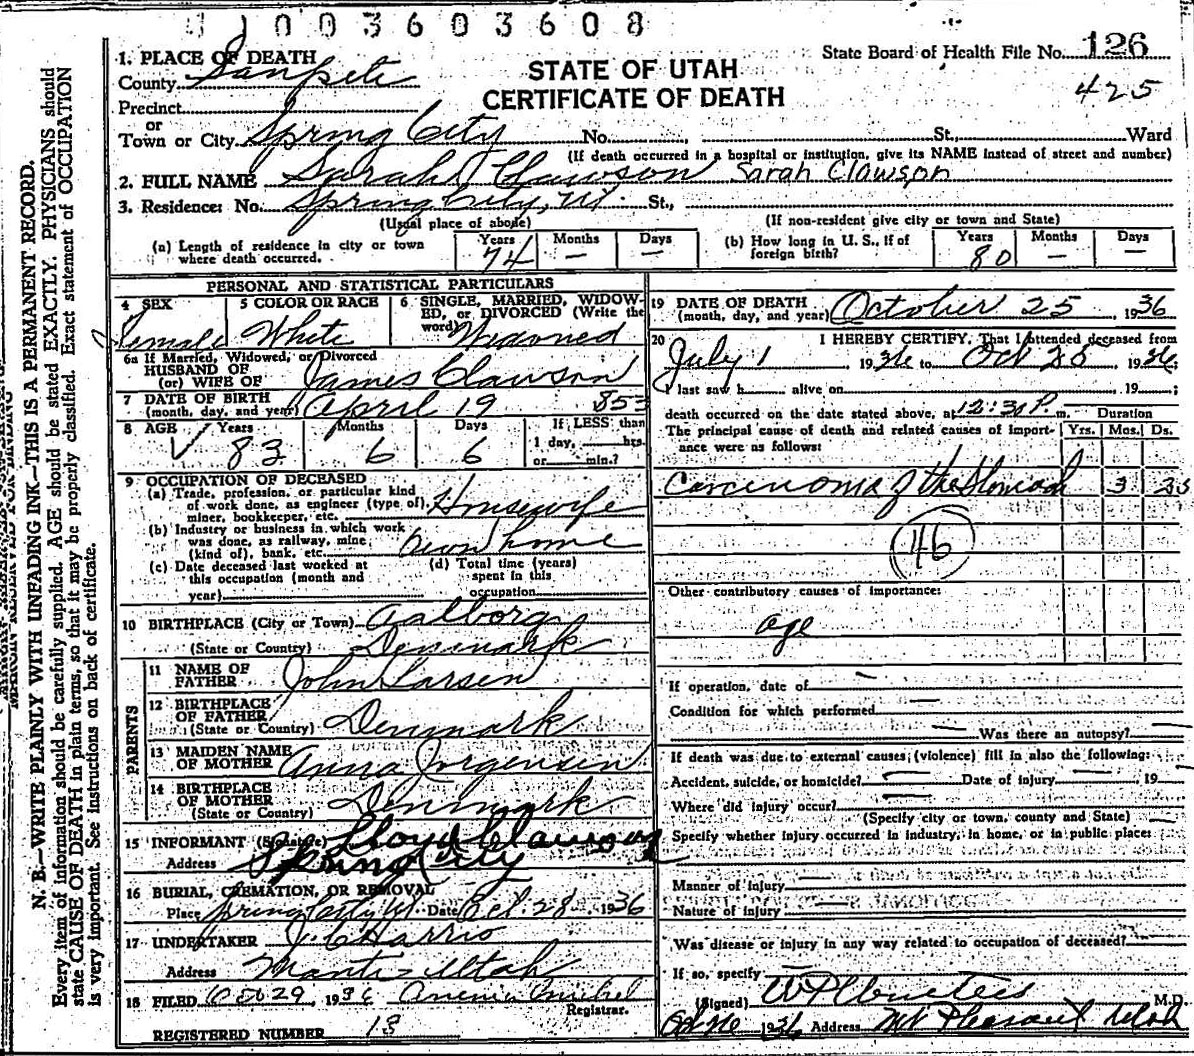 1003603608
State Board of Health File No. 126
425
STATE OF UTAH
CERTIFICATE OF DEATH
1. PLACE OF DEATH
County Sanpete
Precinct
or
Town or City Spring City No. St., Ward
(If death occurred in a hospital or institution, give its NAME instead of street and number)
2. FULL NAME Sarah Clawson Sarah Clawson
3. Residence: No. Spring City, Ut. St.,
(Usual place of abode) (If non-resident give city or town and State)
(a) Length of residence in city or town where death occurred. Years 74 Months — Days —
(b) How long in U. S., if of foreign birth? Years 80 Months — Days —
PERSONAL AND STATISTICAL PARTICULARS
4 SEX Female
5 COLOR OR RACE White
6 SINGLE, MARRIED, WIDOWED, or DIVORCED (Write the word) Widowed
6a If Married, Widowed, or Divorced
HUSBAND OF
(or) WIFE OF James Clawson
7 DATE OF BIRTH
(month, day, and year) April 19 853
8 AGE Years 83 Months 6 Days 6 If LESS than 1 day, hrs. or min.?
9 OCCUPATION OF DECEASED
(a) Trade, profession, or particular kind of work done, as engineer (type of), miner, bookkeeper, etc. Housewife
(b) Industry or business in which work was done, as railway, mine, (kind of), bank, etc. own home
(c) Date deceased last worked at this occupation (month and year)
(d) Total time (years) spent in this occupation
10 BIRTHPLACE (City or Town) Aalborg
(State or Country) Denmark
PARENTS
11 NAME OF FATHER John Larsen
12 BIRTHPLACE OF FATHER
(State or Country) Denmark
13 MAIDEN NAME OF MOTHER Anna Jorgensen
14 BIRTHPLACE OF MOTHER
(State or Country) Denmark
15 INFORMANT (Signature) Lloyd Clawson
Address Spring City
16 BURIAL, CREMATION, OR REMOVAL
Place Spring City Ut. Date Oct. 28 1936
17 UNDERTAKER
Address Manti - Utah
18 FILED Oct 29, 1936
Registrar.
REGISTERED NUMBER 13
19 DATE OF DEATH
(month, day, and year) October 25, 1936
20 I HEREBY CERTIFY, That I attended deceased from
July 1 1936 to Oct 25 1936;
I last saw h alive on 19 ;
death occurred on the date stated above, at 12:30 P. m. Duration
The principal cause of death and related causes of importance were as follows: Yrs. Mos. Ds.
Carcinoma of the Stomach 3 25
46
Other contributory causes of importance:
age
If operation, date of
Condition for which performed
Was there an autopsy?
If death was due to external causes, (violence) fill in also the following:
Accident, suicide, or homicide? Date of injury , 19
Where did injury occur?
(Specify city or town, county and State)
Specify whether injury occurred in industry, in home, or in public place:
Manner of injury
Nature of injury
Was disease or injury in any way related to occupation of deceased?
If so, specify
(Signed) M.D.
1936 Address Mt Pleasant Utah
N. B.—WRITE PLAINLY WITH UNFADING INK—THIS IS A PERMANENT RECORD.
Every item of information should be carefully supplied. AGE should be stated EXACTLY. PHYSICIANS should
state CAUSE OF DEATH in plain terms, so that it may be properly classified. Exact statement of OCCUPATION
is very important. See instructions on back of certificate.